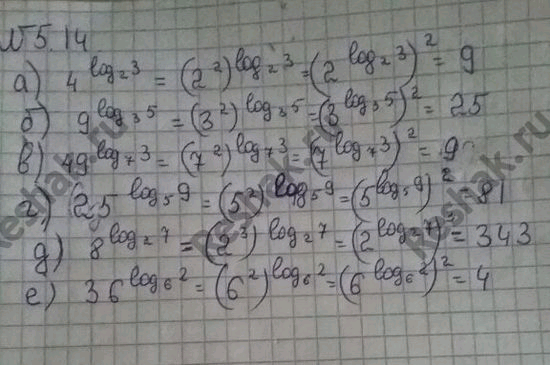 №5.14.
а) 4^{log₂3} = (2²)^{log₂3} = (2^{log₂3})² = 9
б) 9^{log₃5} = (3²)^{log₃5} = (3^{log₃5})² = 25
в) 49^{log₇3} = (7²)^{log₇3} = (7^{log₇3})² = 9
г) 25^{log₅9} = (5²)^{log₅9} = (5^{log₅9})² = 81
д) 8^{log₂7} = (2³)^{log₂7} = (2^{log₂7})³ = 343
е) 36^{log₆2} = (6²)^{log₆2} = (6^{log₆2})² = 4
Reshak.ru
Reshak.ru
Reshak.ru